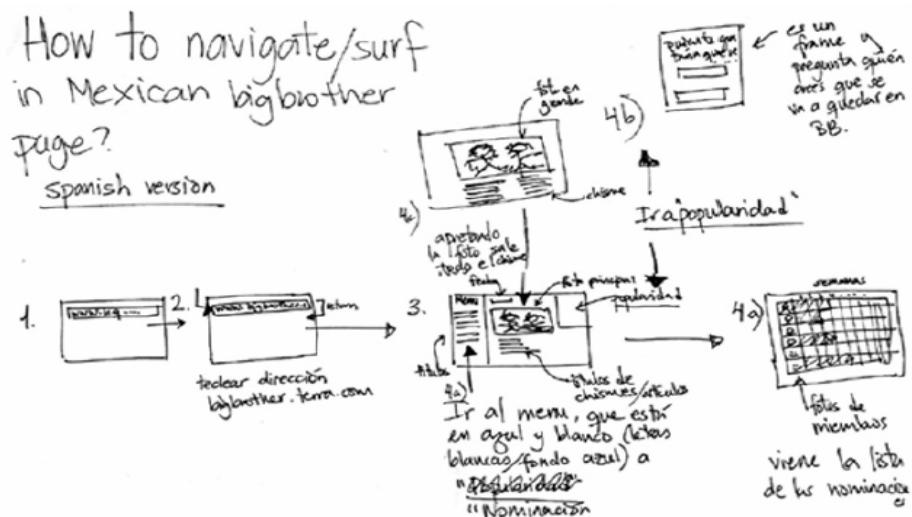 How to navigate/surf
in Mexican bigbrother
page?
spanish version
1.
2.
return
teclear dirección
bigbrother.terra.com
3.
Menu
fecha
foto principal
popularidad
títulos
títulos de
chismes/artículos
4a)
Ir al menu, que está
en azul y blanco (letras
blancas/fondo azul) a
"Nominación
4c)
foto en
grande
chisme
apretando
la foto sale
todo el chisme
4b)
es un
frame y
pregunta quién
crees que se
va a quedar en
BB.
Ir a "popularidad"
4a)
semanas
fotos de
miembros
viene la lista
de las nominaciones